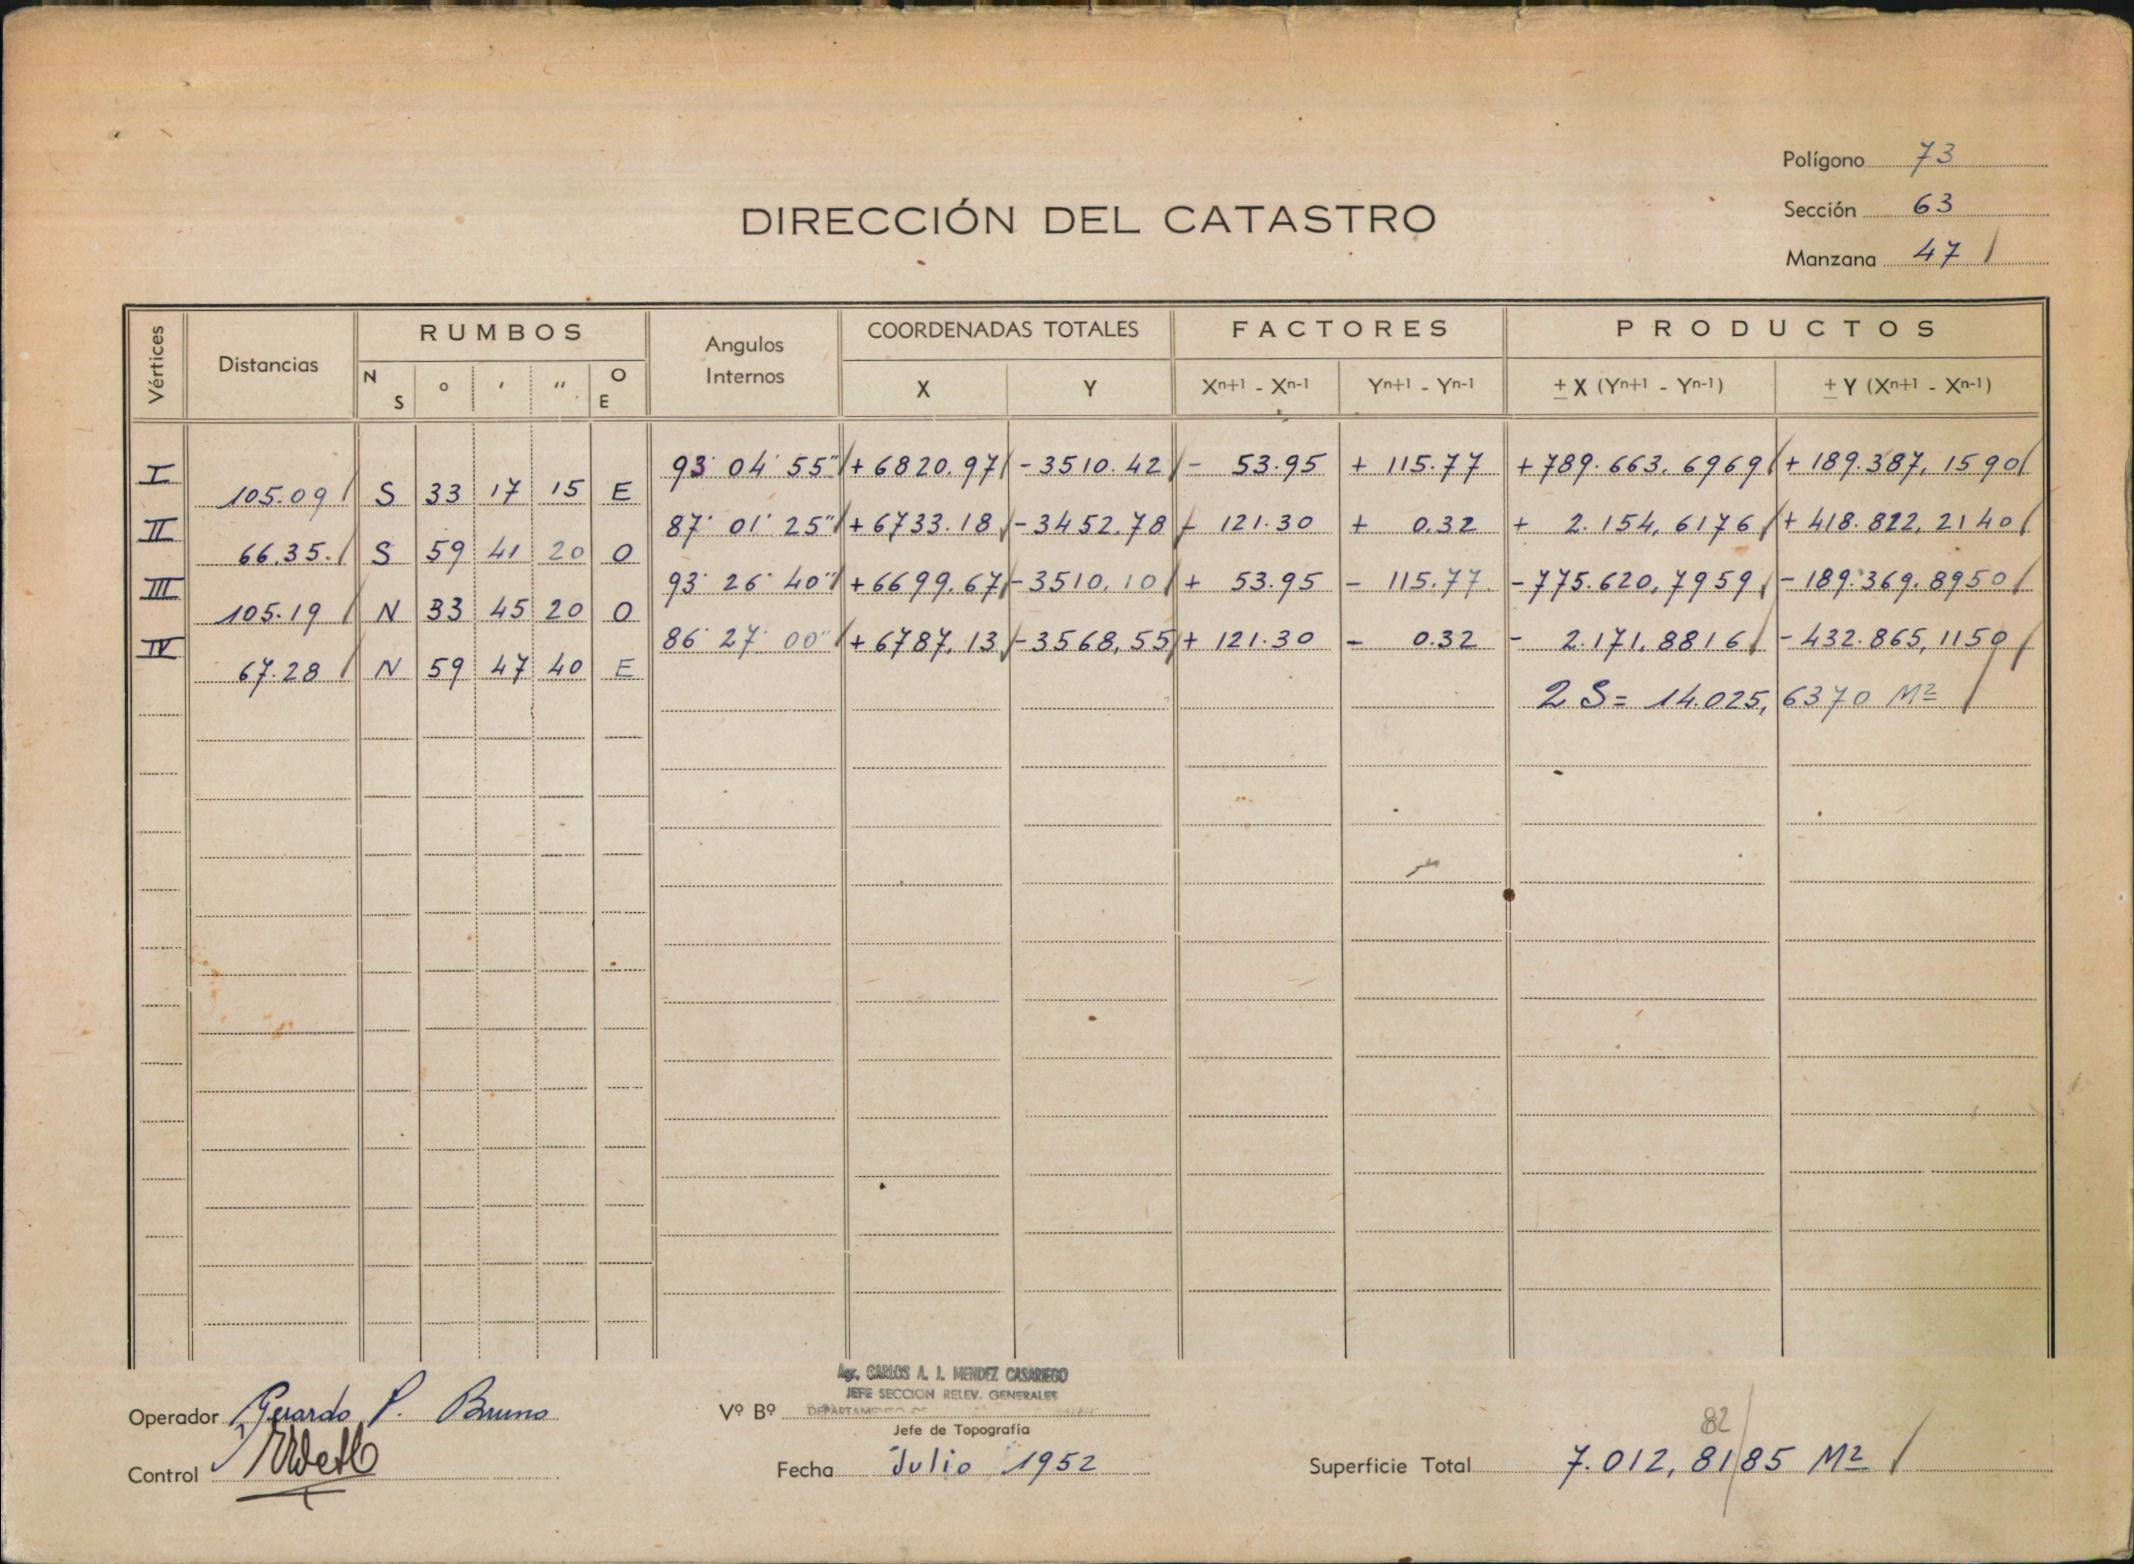 Polígono 73
Sección 63
Manzana 47
DIRECCIÓN DEL CATASTRO
Vértices Distancias RUMBOS Angulos Internos COORDENADAS TOTALES FACTORES PRODUCTOS
N S ° ' " O E X Y Xn+1 - Xn-1 Yn+1 - Yn-1 ± X (Yn+1 - Yn-1) ± Y (Xn+1 - Xn-1)
I 93° 04' 55" + 6820.97 - 3510.42 - 53.95 + 115.77 + 789.663,6969 + 189.387,1590
105.09 S 33 17 15 E
II 87° 01' 25" + 6733.18 - 3452.78 - 121.30 + 0.32 + 2.154,6176 + 418.822,2140
66.35 S 59 41 20 O
III 93° 26' 40" + 6699.67 - 3510.10 + 53.95 - 115.77 - 775.620,7959 - 189.369.8950
105.19 N 33 45 20 O
IV 86° 27' 00" + 6787.13 - 3568,55 + 121.30 - 0.32 - 2.171,8816 - 432.865,1150
67.28 N 59 47 40 E
2 S = 14.025,6370 M2
Agr. CARLOS A. J. MENDEZ CASARIEGO
JEFE SECCION RELEV. GENERALES
Operador Gerardo P. Bruno
Vº Bº DEPARTAMENTO DE
Jefe de Topografía
82
Control
Fecha Julio 1952
Superficie Total 7.012,8185 M2